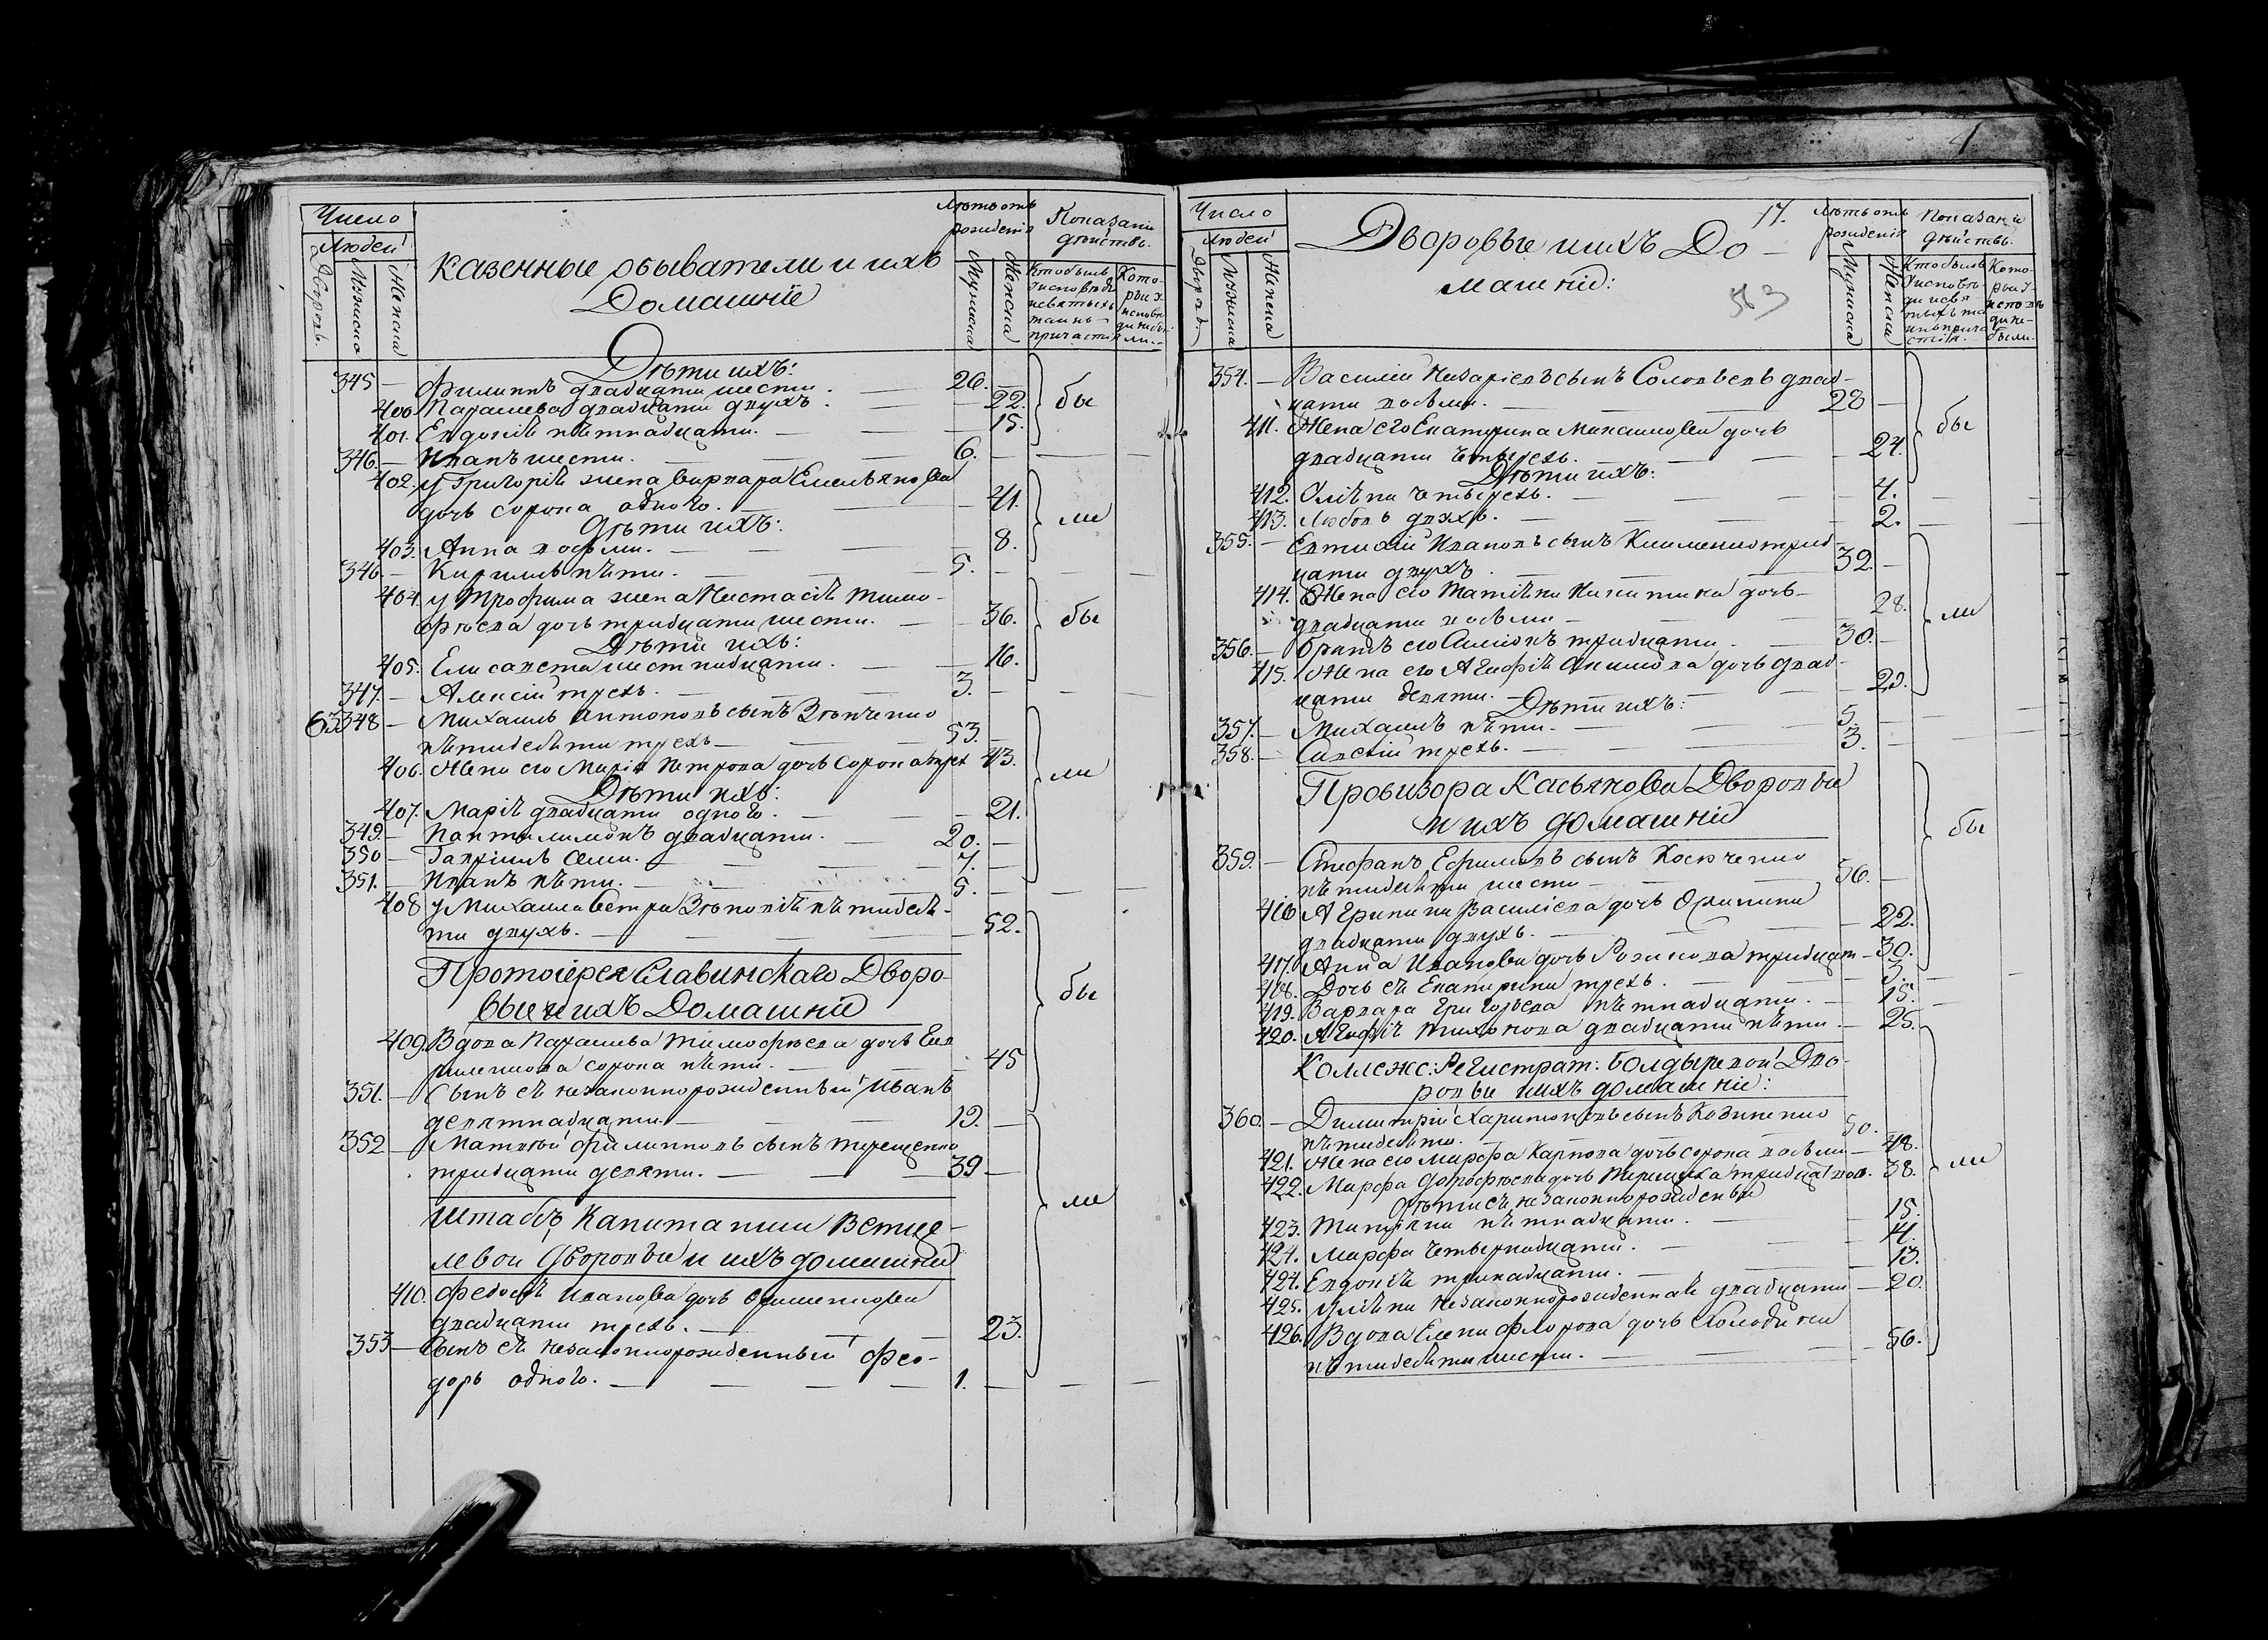 Число
Людей
Дворовъ.
Мужеска
Женска
Казенные обыватели и ихъ
Домашніе
Лѣтъ отъ
рожденія
Мужеска
Женска
Показаніе
дѣйствъ.
Кто былъ
Которые
Дѣти ихъ:
345 — Филиппъ двадцати шести. — 26.
400. Парасева двадцати двухъ. — 22.
401. Евдокія пятнадцати. — 15.
бы
346. — Иванъ шести. — 6.
402. у Григорія жена Варвара Емельянова
дочь сорока одного. — 41.
Дѣти ихъ:
ли
403. Анна восьми. — 8.
346. — Кирилъ пяти. — 5.
404. у Трофима жена Настасія Тимо-
фѣева дочь тридцати шести. — 36.
бы
Дѣти ихъ:
405. Елисавета шестнадцати. — 16.
347. — Алексій трехъ. — 3.
63 348 — Михаилъ Антоновъ сынъ
пятидесяти трехъ — 53.
406. Жена его Марія Петрова дочь сорока трех 43.
ли
Дѣти ихъ:
407. Марія двадцати одного. — 21.
349. — Пантелимонъ двадцати. — 20.
350 — Гавріилъ семи. — 7.
351. — Иванъ пяти. — 5.
408 у Михаила сестра пятидеся-
ти двухъ. — 52.
Протоіерея Славинскаго Дворо-
вые и ихъ Домашніе
бы
409. Вдова Парасева Тимофѣева дочь
сорока пяти. — 45
351. — Сынъ ея незаконнорожденный Иванъ
девятнадцати. — 19.
352 — Матвій Филипповъ сынъ Терещенко
тридцати девяти. — 39 —
Штабсъ Капитанши
левой Дворовые и ихъ домашніе
ли
410. Федосія Иванова дочь
двадцати трехъ. — 23.
353 — Сынъ ея незаконнорожденный Фео-
доръ одного. — 1.
17.
563
Число
Людей
Дворовъ.
Мужеска
Женска
Дворовые и ихъ До-
машніе:
Лѣтъ отъ
рожденія
Мужеска
Женска
Показаніе
дѣйствъ.
354. — Василій Назаріевъ сынъ Соловьевъ двад-
цати восьми. — 28 —
411. Жена его Екатерина Михаилова дочь
двадцати четырехъ. — 24.
бы
Дѣти ихъ:
412. Уліяна четырехъ. — 4.
413. Любовь двухъ. — 2.
355. — Евтихій Ивановъ сынъ Клименко трид-
цати двухъ — 32.
414. Жена его Татіяна Никитина дочь
двадцати восьми — 28.
ли
356. — Братъ его Симеонъ тридцати — 30.
415. Жена его Агафія Акимова дочь двад-
цати девяти. — 29.
Дѣти ихъ:
357. — Михаилъ пяти. — 5.
358. — Савелій трехъ. — 3.
Провизора Касьянова Дворовые
и ихъ домашніе
бы
359. — Стефанъ Ефимовъ сынъ Косюченко
пятидесяти шести — 56.
416 Агрипина Василіева дочь
двадцати двухъ. — 22.
417. Анна Иванова дочь тридцати — 30.
418. Дочь ея Екатерина трехъ. — 3.
419. Варвара Григорьева пятнадцати. — 15.
420. Агафія Тихонова двадцати пяти. — 25.
Коллежс: Регистрат: Болдыревой Дво-
ровые и ихъ домашніе:
360. — Димитрій Харитоновъ сынъ Козиненко
пятидесяти. — 50.
421. Жена его Марфа Карпова дочь сорока восьми — 48.
ли
422. Марфа дочь тридцат вос. 38.
Дѣти ея незаконнорожденные
423. Татіяна пятнадцати. — 15.
424. Марфа четырнадцати. — 14.
424. Евдокія тринадцати. — 13.
425. Уліяна незаконнорожденная двадцати — 20.
426. Вдова Елена Флорова дочь
пятидесяти шести. — 56.